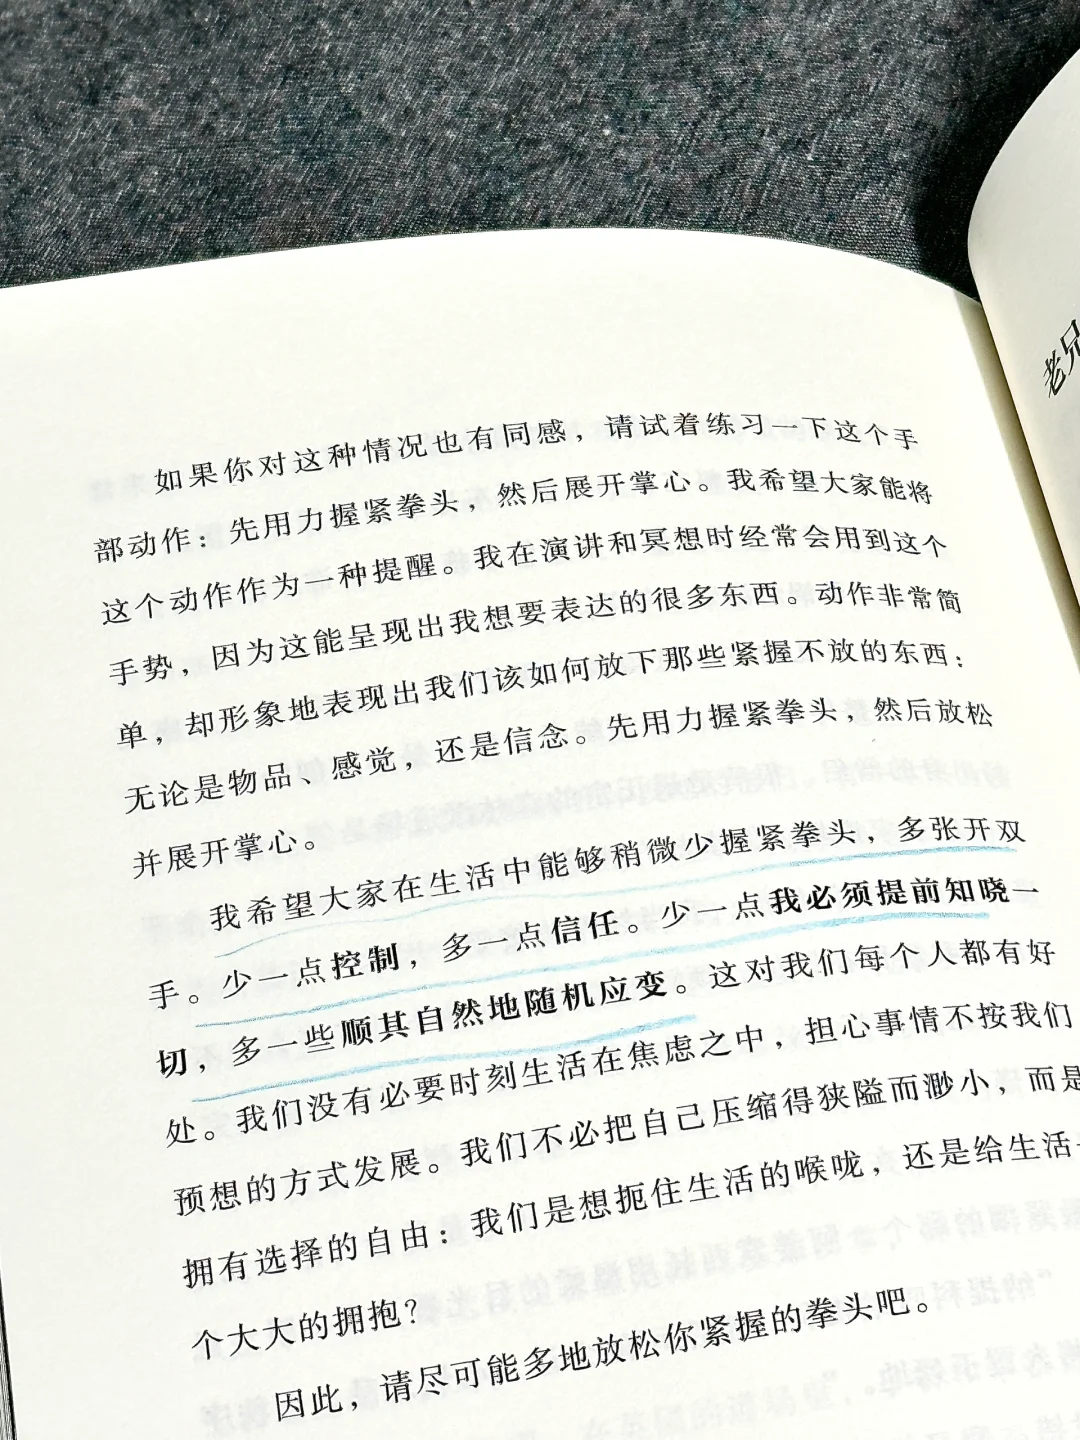 如果你对这种情况也有同感，请试着练习一下这个手
部动作：先用力握紧拳头，然后展开掌心。我希望大家能将
这个动作作为一种提醒。我在演讲和冥想时经常会用到这个
手势，因为这能呈现出我想要表达的很多东西。动作非常简
单，却形象地表现出我们该如何放下那些紧握不放的东西：
无论是物品、感觉，还是信念。先用力握紧拳头，然后放松
并展开掌心。
我希望大家在生活中能够稍微少握紧拳头，多张开双
手。少一点控制，多一点信任。少一点我必须提前知晓一
切，多一些顺其自然地随机应变。这对我们每个人都有好
处。我们没有必要时刻生活在焦虑之中，担心事情不按我们
预想的方式发展。我们不必把自己压缩得狭隘而渺小，而是
拥有选择的自由：我们是想扼住生活的喉咙，还是给生活
个大大的拥抱？
因此，请尽可能多地放松你紧握的拳头吧。
老兄